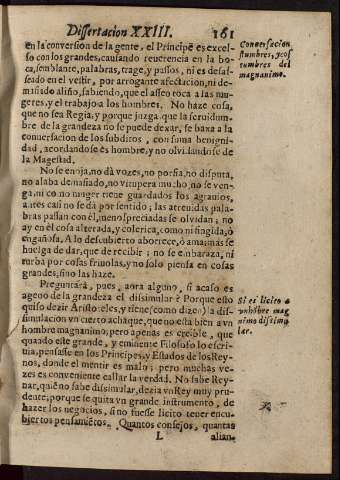 Dissertacion XXIII. 161
en la conversion de la gente, el Principe es excel-
so con los grandes, causando reverencia en la bo-
ca, semblante, palabras, trage, y passos, ni es desas-
seado en el vestir, por arrogante afectacion, ni de-
masiado aliño, sabiendo, que el asseo toca a las mu-
geres, y el trabajo a los hombres. No haze cosa,
que no sea Regia, y porque juzga que la
de la grandeza no se puede dexar, se baxa a la
conversacion de los subditos, con suma benigni-
dad, acordandose es hombre, y no olvidandose de
la Magestad.
No se enoja, no dà vozes, no porfia, no disputa,
no alaba demasiado, no vitupera mucho, no se ven-
ga, ni como ninger tiene guardados los agravios,
antes casi no se dà por sentido; las atrevidas pala-
bras passan con èl, menospreciadas se olvidan; no
ay en èl cosa alterada, y colerica, como ni fingida, ò
engañosa. A lo descubierto aborrece, ò ama: mas se
huelga de dar, que de recibir; no se embaraza, ni
turba por cosas frivolas, y no solo piensa en cosas
grandes, sino las haze.
Preguntarà, pues, aora alguno, si acaso es
ageno de la grandeza el dissimular? Porque esto
quiso dezir Aristoteles, y tiene (como dize) la dis-
simulacion vn cierto achaque, que no està bien a vn
hombre magnanimo, pero apenas es creible, que
quando este grande, y eminente Filosofo lo escri-
via, pensasse en los Principes, y Estados de los Rey-
nos, donde el mentir es malo; pero muchas ve-
zes es conveniente callar la verdad. No sabe Rey-
nar, quiẽ no sabe dissimular, dezia vn Rey muy pru-
dente; porque se quita vn grande instrumento, de
hazer los negocios, si no fuesse licito tener encu-
biertos pensamẽtos. Quantos consejos, quantas
L alian-
Conversacion
stumbres, y co
stumbres del
magnanimo.
Si es licito a
vn hõbre mag
nimo dissimu
lar.